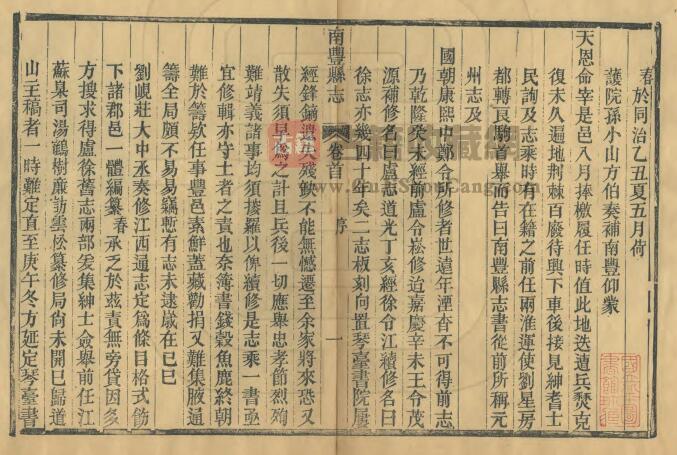 春於同治乙丑夏五月荷
護院孫小山方伯奏補南豐仰蒙
天恩命宰是邑八月捧檄履任時值此地迭遭兵燹克
復未久遍地荆棘百廢待興下車後接見紳耆士
民詢及志乘時有在籍之前任兩淮運使劉星房
都轉良駒首舉而告曰南豐縣志書從前所稱元
州志及
國朝康熙中鄭令所修者世遠年湮杳不可得前志
乃乾隆癸未經前盧令崧修迨嘉慶辛未王令茂
源補修名曰盧志道光丁亥經徐令江續修名曰
徐志亦幾四十年矣二志板刻向置琴臺書院屢
南豐縣志
卷首
序
一
經鋒鏑遺失殘缺不能無憾遷至余家將來恐又
散失須早為之計且兵後一切應舉忠孝節烈殉
難靖義諸事均須搜羅以俾續修是志乘一書亟
宜修輯亦守土者之責也奈簿書錢穀魚鹿終朝
難於籌款任事豐邑素鮮蓋藏勸捐又難集腋通
籌全局頗不易易竊慙有志未逮歲在己巳
劉峴莊大中丞奏修江西通志定為條目格式飭
下諸郡邑一體編纂春承乏於茲責無旁貸因多
方搜求得盧徐舊志兩部爰集紳士僉舉前任江
蘇臬司湯鶴樹廉訪雲松纂修局尚未開巳歸道
山主稿者一時難定直至庚午冬方延定琴臺書